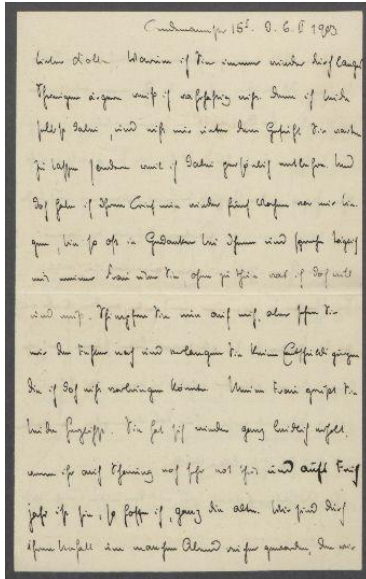 Lindemannstr 15 I. D. 6. II 1903
Lieber Dialen Warum ich Sie immer wieder durch langes
Schweigen ärgere weiß ich wahrhaftig nicht. Denn ich leide
selbst dabei, und nicht nur unter dem Gefühl Sie warten
zu lassen sondern weil ich dabei persönlich entbehre. Und
doch habe ich Ihren Brief nun wieder fünf Wochen vor mir lie-
gen, bin so oft in Gedanken bei Ihnen und spreche täglich
mit meiner Frau über Sie, ohne zu thun was ich doch will
und muß. Schimpfen Sie nun auf mich, aber sehen Sie
mir den Fehler nach und verlangen Sie keine Entschuldigungen
die ich doch nicht vorbringen könnte. Meine Frau grüßt Sie
beide herzlichst. Sie hat sich wieder ganz leidlich erholt,
wenn ihr auch Schonung noch sehr not thut und aufs Früh
jahr ist sie, so hoffe ich, ganz die alte. Wir sind durch
Ihren Unfall um manchen Abend reicher geworden, den wir